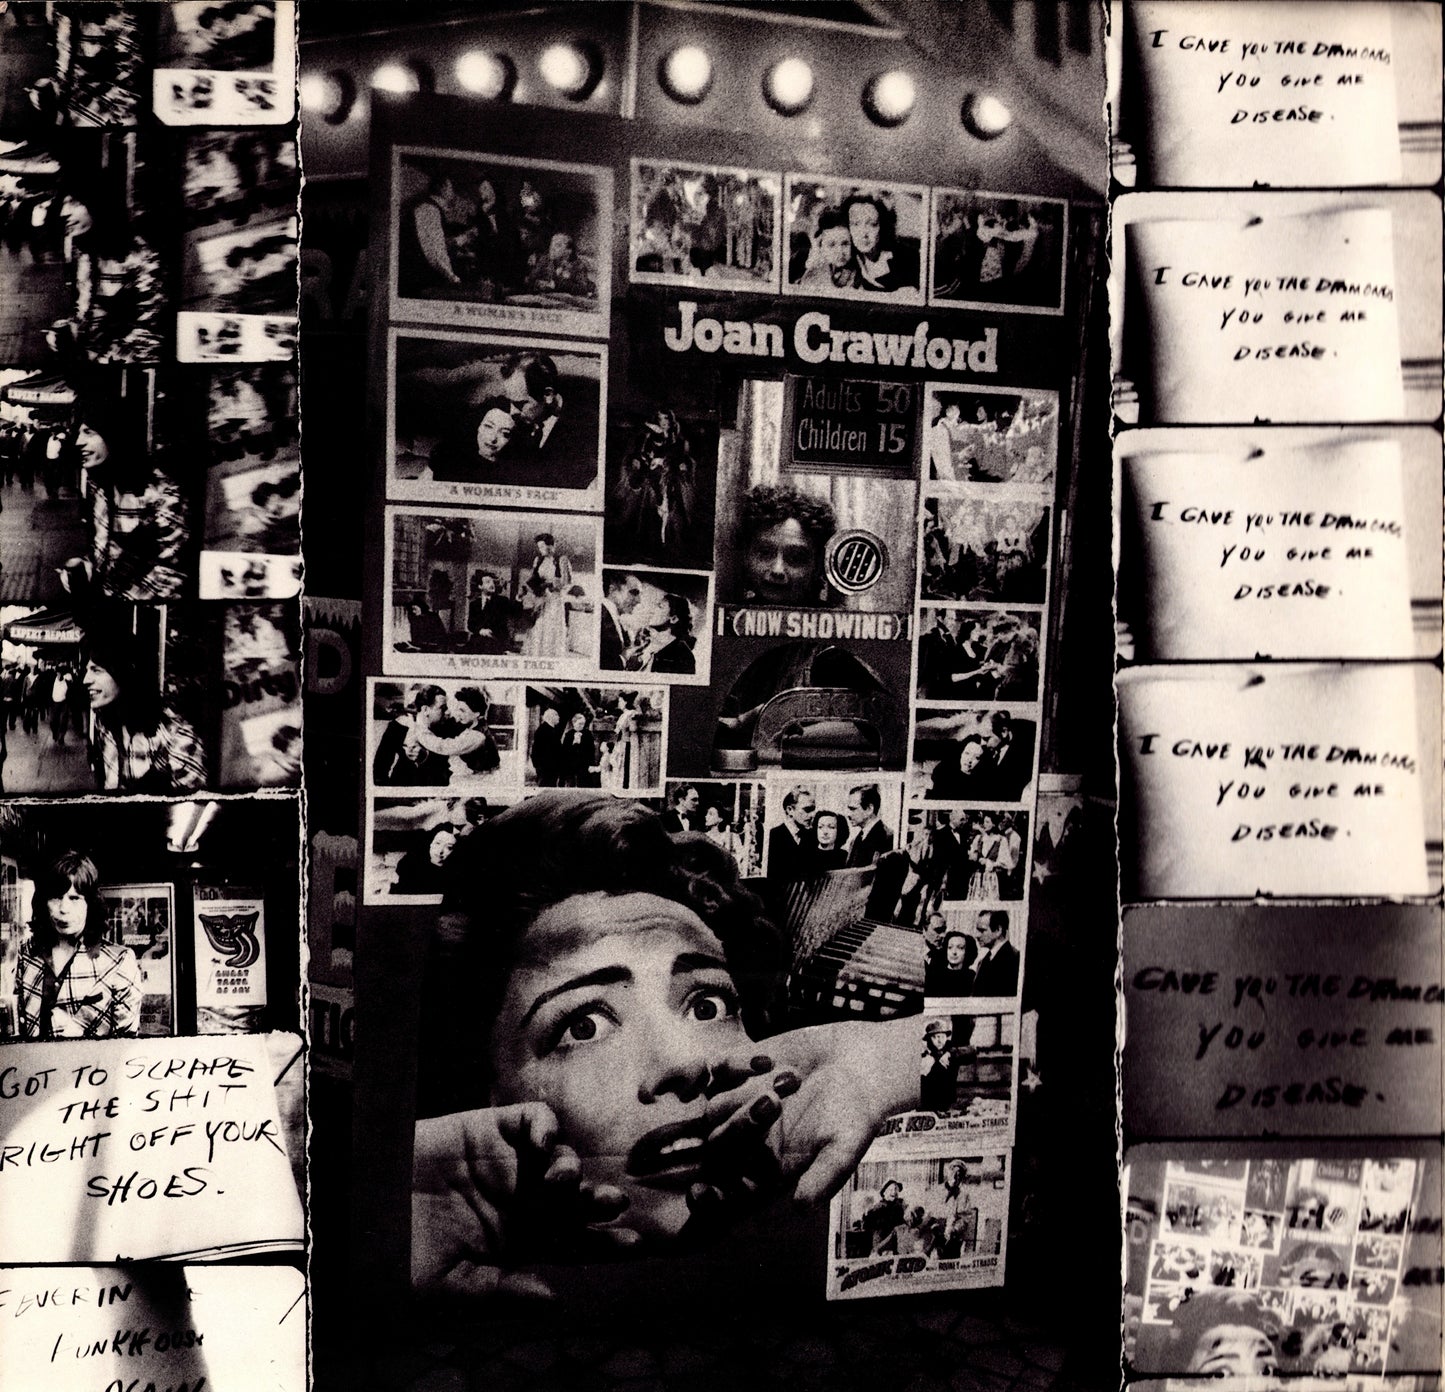 EXPERT REPAIRS
EXPERT REPAIRS
Dirty
GOT TO SCRAPE
THE SHIT
RIGHT OFF YOUR
SHOES.
FEVER IN
FUNKHOUSE
AGAIN
"A WOMAN'S FACE"
"A WOMAN'S FACE"
"A WOMAN'S FACE"
Joan Crawford
Adults 50
Children 15
(NOW SHOWING)
ATOMIC KID
ROONEY STRAUSS
The ATOMIC KID
ROONEY STRAUSS
I GAVE YOU THE DIAMONDS
YOU GIVE ME
DISEASE.
I GAVE YOU THE DIAMONDS
YOU GIVE ME
DISEASE.
I GAVE YOU THE DIAMONDS
YOU GIVE ME
DISEASE.
I GAVE YOU THE DIAMONDS
YOU GIVE ME
DISEASE.
GAVE YOU THE DIAMON
YOU GIVE ME
DISEASE.